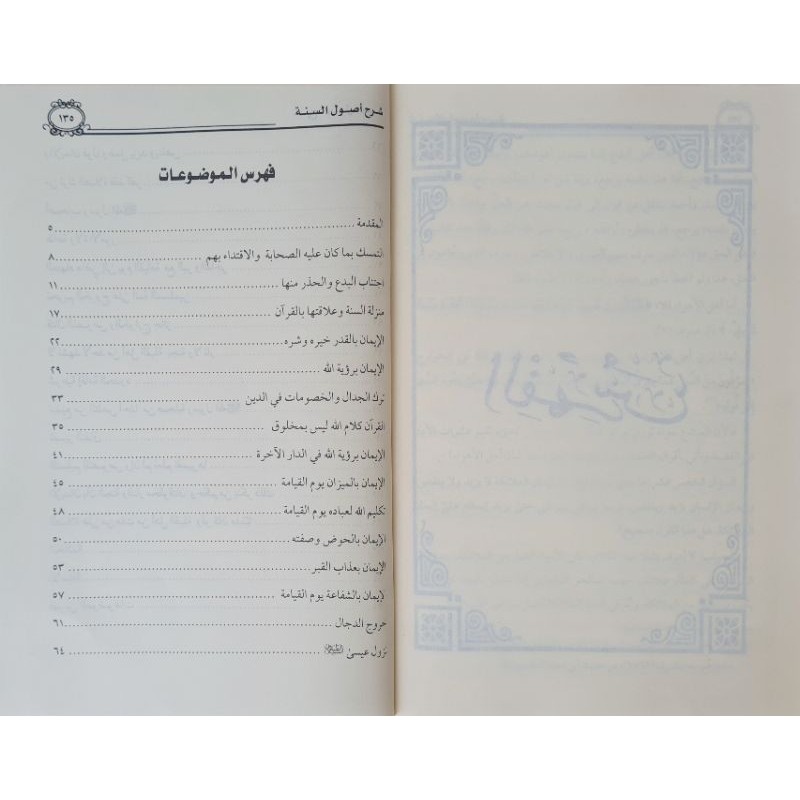 شرح أصول السنة
١٣٥
فهرس الموضوعات
المقدمة ..................................................... ٥
التمسك بما كان عليه الصحابة والاقتداء بهم ........................ ٨
اجتناب البدع والحذر منها ..................................... ١١
منزلة السنة وعلاقتها بالقرآن .................................... ١٧
الإيمان بالقدر خيره وشره ...................................... ٢٢
الإيمان برؤية الله .............................................. ٢٩
ترك الجدال والخصومات في الدين ............................... ٣٣
القرآن كلام الله ليس بمخلوق .................................. ٣٥
الإيمان برؤية الله في الدار الآخرة ............................... ٤١
الإيمان بالميزان يوم القيامة ..................................... ٤٥
تكليم الله لعباده يوم القيامة .................................... ٤٨
الإيمان بالحوض وصفته ........................................ ٥٠
الإيمان بعذاب القبر ........................................... ٥٣
لإيمان بالشفاعة يوم القيامة .................................... ٥٧
خروج الدجال ................................................ ٦١
نزول عيسى ................................................. ٦٤
الفهرس